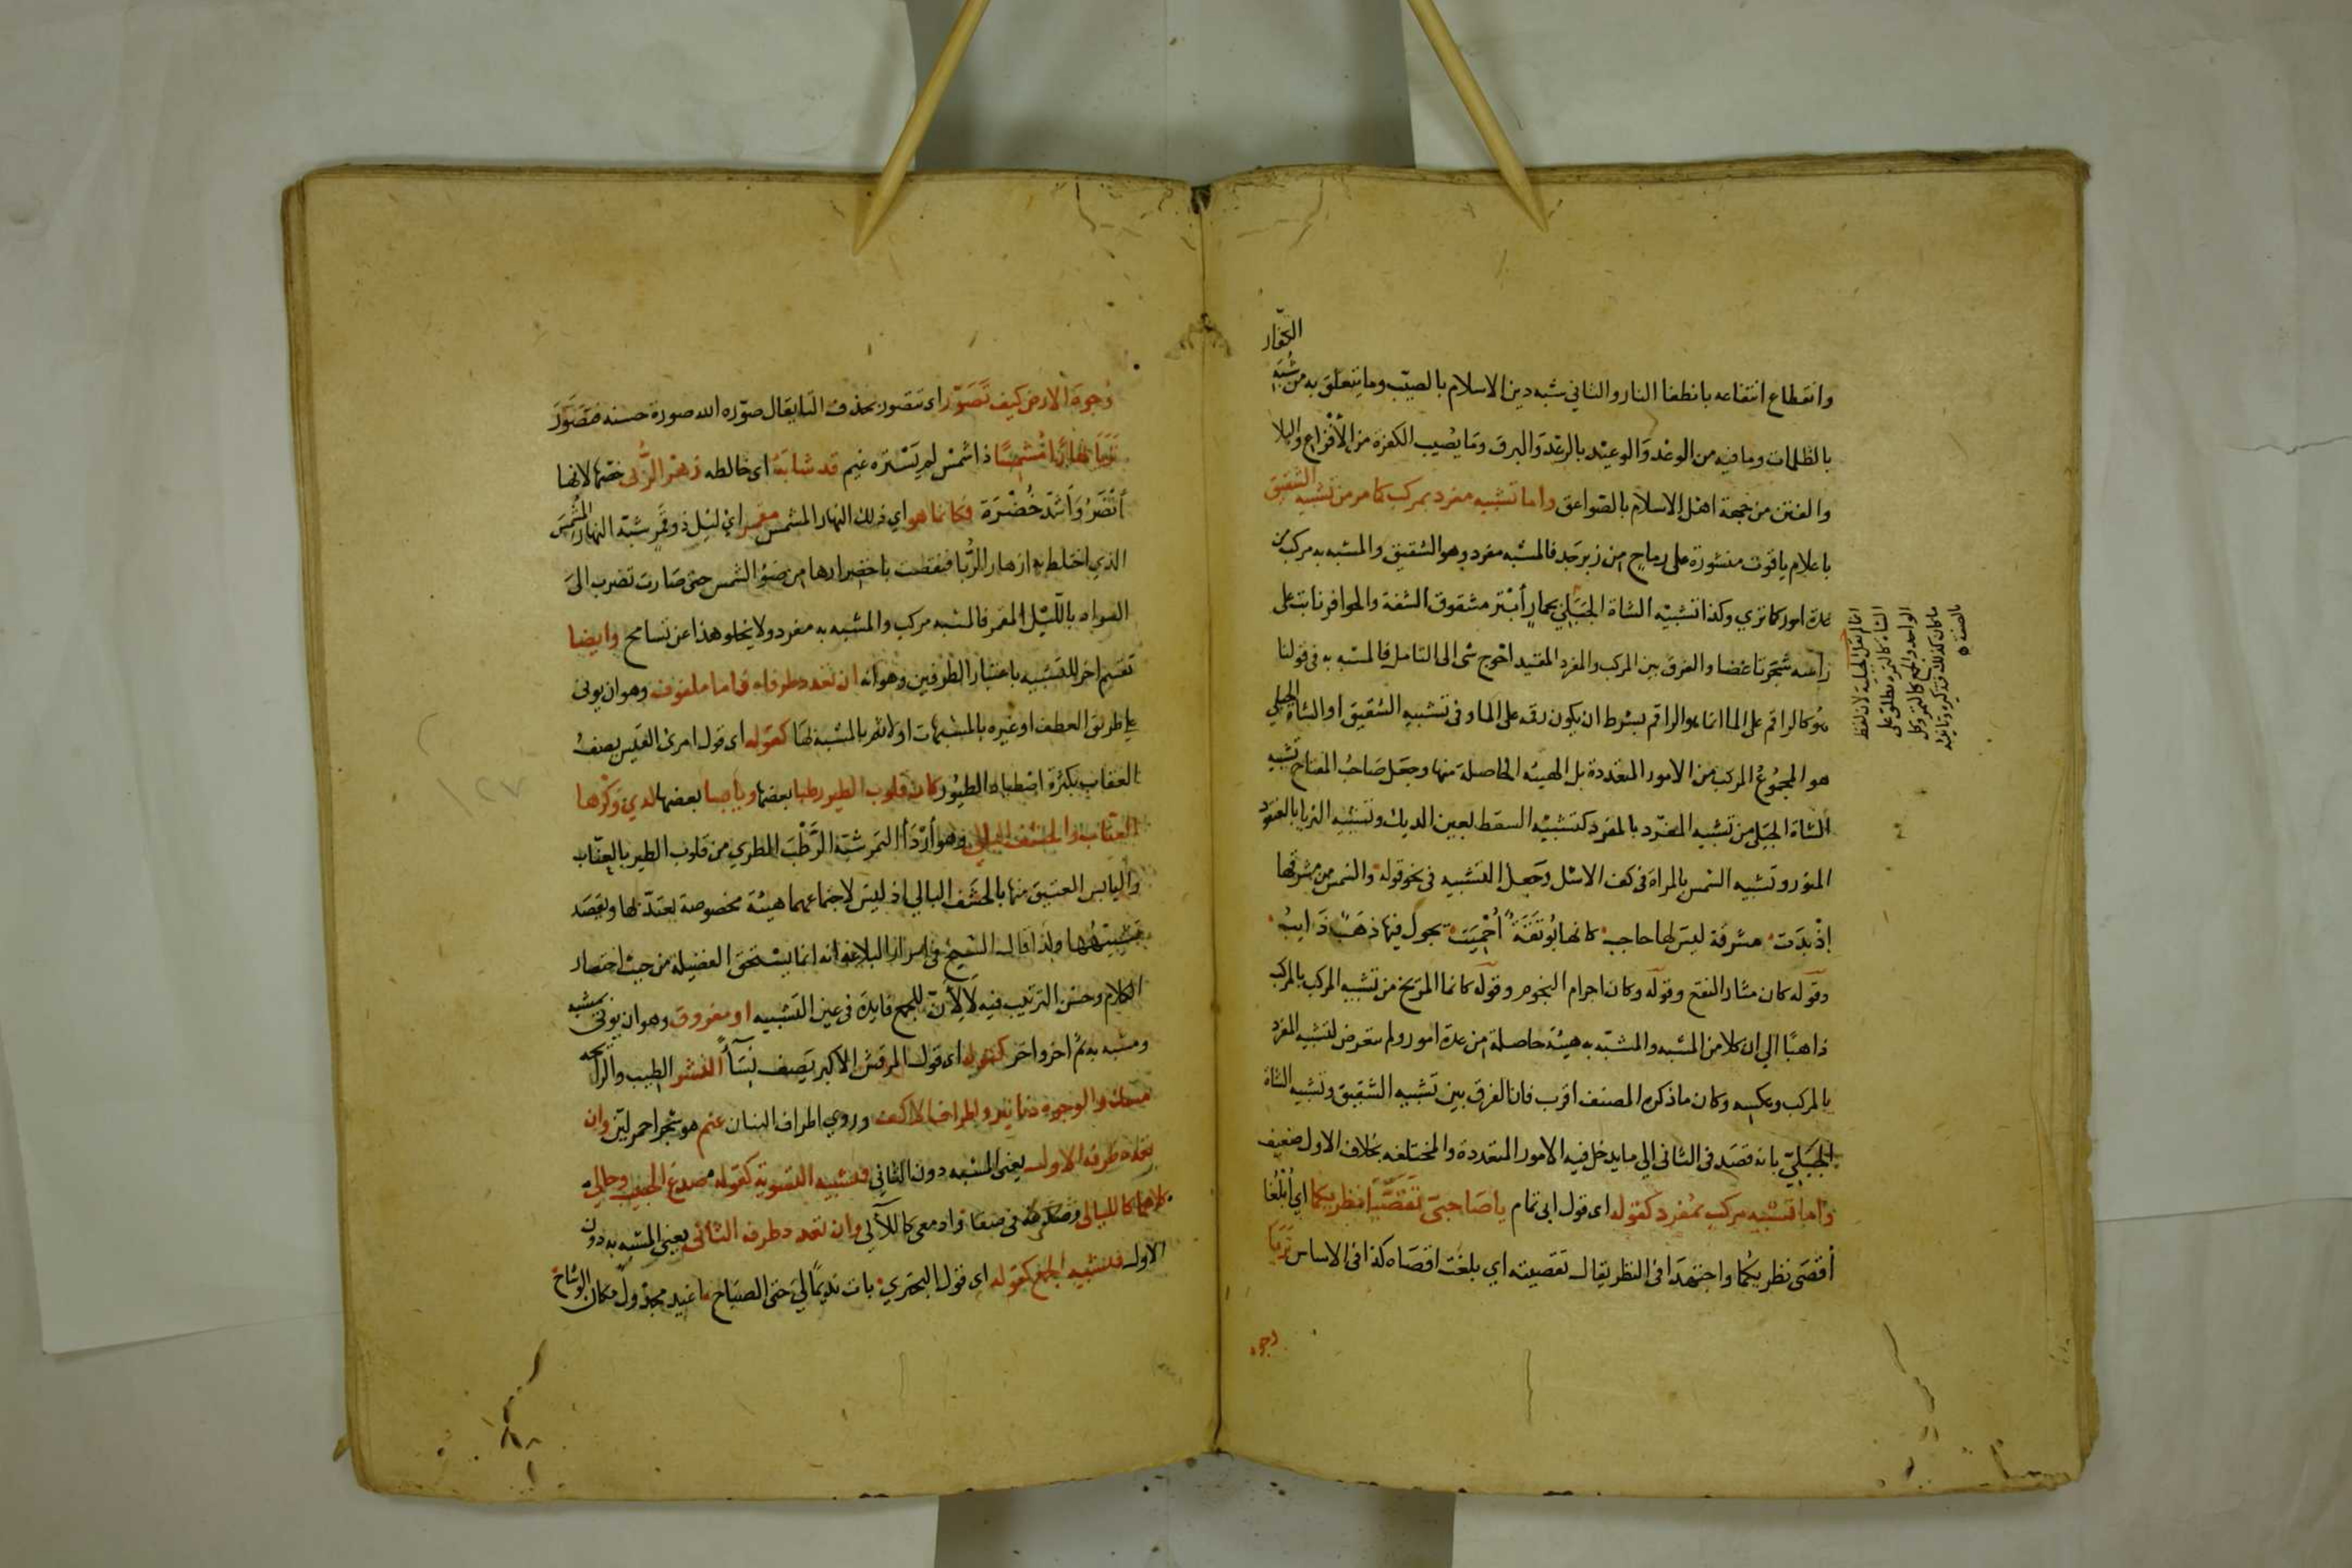 الكفار
وانقطاع انتفاعه بانطفا النار والثاني شبه دين الاسلام بالصيّب وما يتعلق به من شُبَهِ
بالظلمات وما فيه من الوعْد وَالوعيْد بالرعْد وَالبرق وَما يصُيب الكفرة من الأفزاع والبلا
والفتن من جهة اهْل الاسلام بالصّواعق واما تشبيه مفرد بمركب كما مر من تشبيه الشقيق
باعلام ياقوت منشورة على رماح من زبرجد فالمشبه مفرد وهو الشقيق والمشبه به مركب من
عدة امور كما تري وكذا تشبيْه الشاة الجَبَلي بحمارٍ أبْتر مشقوق الشفة والحوافر نابت على
رأسه شجرتا غضا والفرق بين المركب والمفرد المقيد احْوج شى الى التامل فالمشبه به فى قولنا
هُو كالراقم على الما انما هو الراقم بشرط ان يكون رقمه على الما وفى تشبيه الشقيق او الشاة الجبلي
هو المجمُوعُ المركب من الامور المتعددة بل الهيئه الحاصلة منها وجعَل صَاحبُ المفتاح تشبيه
الشاة الجَبَلي من تشبيه المفرد بالمفرد كتشبيْه السقط بعين الديك وتشبيه الثريا بالعنقود
المنور وتشبيه الشمس بالمراة فى كف الاشل وجَعلَ التشبيه فى نحو قوله والشمس من مشرقها
إذْ بدَت مشرقة ليسَ لها حاجب كانها بُوتقَةٌ أُحْميَت يجول فيها ذهَبٌ ذَايبُ
وقوله كان مثار النقع وقوله وكان اجرام النجوم وقوله كانما المريخ من تشبيه المركب بالمركب
ذاهبًا الي ان كلا من المشبه والمشبّه به هيئة حاصلة من عدة امور ولم يتعرض لتشبيه المفرد
بالمركب وعكسه وكان ما ذكره المصنف اقرب فان الفرق بين تشبيه الشقيق وتشبيه الشاة
الجَبَليّ بانه قصَد فى الثانى الي ما يدخل فيه الامور المتعددة والمختلفه بخلاف الاول ضعيف
واما تشبيه مركب بمُفرد كقوله اى قول ابى تمام ياصَاحبىَ تَقَصَّيَا نظريكما اي أبْلُغا
أقصَى نظريكُما واجتهدَا فى النظر يقال تقصيته اي بلغت اقصَاه كذا فى الاساس تَرَيَا
وجوه
انما لم يقل الجبلية لان لفظ
الشاة كالبقرة يطلق على
الواحد والجمع كالتمر وكل
ما كان كذلك فتذكيره وتانيثه
بالصفة
وُجوهَ الارض كيف تَصَوّرُ اى تتصور بحذف التا يقال صوّره الله صورة حسنه فتَصَوَّرَ
تَرَيَا نهَارًا مُشْمسًا ذا شمْس لم يَسْتره غيم قد شابَهُ اى خالطه زهَرُ الرُّبى خصّها لانها
أَنْضَرُ وَأشدّ خُضْرَة فكانما هو اي ذلك النهار المشمس مقمر اى ليْل ذو قمَر شبّه النهار المشمسَ
الذي اختلط به ازهار الرُّبا فنقصت باخضرارها من ضَوْ الشمس حتى صَارت تضرب الىَ
السواد بالليْل المقمر فالمشبه مركب والمشبه به مفرد ولا يخلو هذا عن تسامح وايضا
تقسيم اخر للتشبيه باعتبار الطرفين وهو انه ان تعدد طرفاه فاما ملفوف وهو ان يوتى
على طريق العطف او غيره بالمشبهات اولا ثم بالمشبه بها كقوله اى قول امرئ القيس يصفُ
العقاب بكثرة اصْطياد الطيُور كان قلوب الطير رطبا بعضها ويابسا بعضها لدي وَكْرها
العنّاب والحشف البالي وهو أرْدَأ التمر شبّه الرَّطْبَ الطري من قلوب الطير بالعنّاب
واليابس العتيق منها بالحَشف البالي اذ ليسَ لاجتماعهما هيئة مخصوصة يعتدّ بها ويقصَد
تشبيهُها ولذا قال الشيخ فى اسرار البلاغه انه انما يستحق الفضيلة من حيث اختصار
الكلام وحسْن الترتيب فيه لا لأنّ للجمع فايدة فى عين التشبيه او مفروق وهو ان يوتى بمشبه
ومشبه به ثم اخر واخر كقوله اى قول المرقش الاكبر يَصف نسَآءً النشر الطيب والرايحه
مسك والوجوه دنانير واطراف الاكف وروي اطراف البنان عنم هو شجر احمر ليّن وان
تعدد طرفه الاول يعنى المشبه دون الثاني فتشبيه التسوية كقوله صدغ الحبيب وحالي
كلاهما كالليالى وثغره فى صفا وادمعى كاللآلي وان تعدد طرفه الثانى يعنى المشبه به دون
الاول فتشبيه الجمع كقوله اى قول البحتري بات نديمًا لي حتى الصبَاح اغيد مجدُول مكان الوشاح
١٢٧